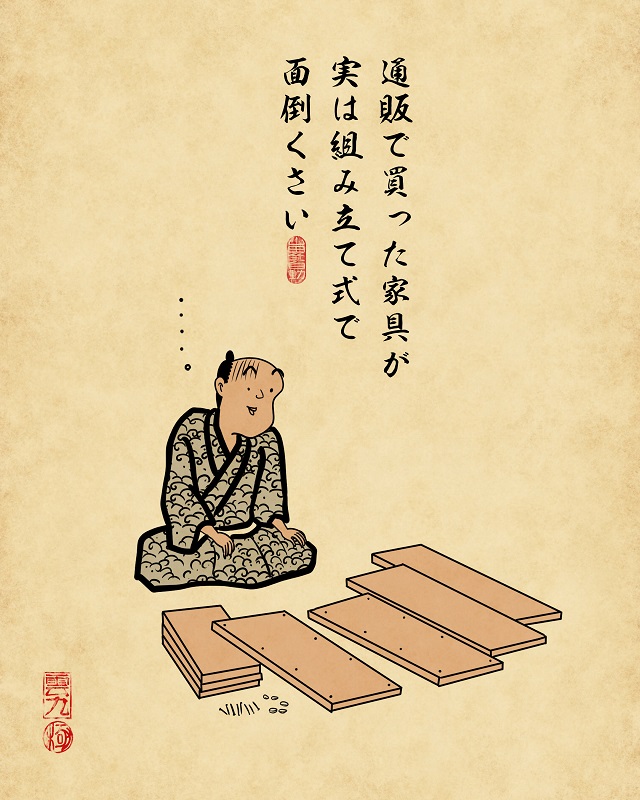 通販で買った家具が
実は組み立て式で
面倒くさい